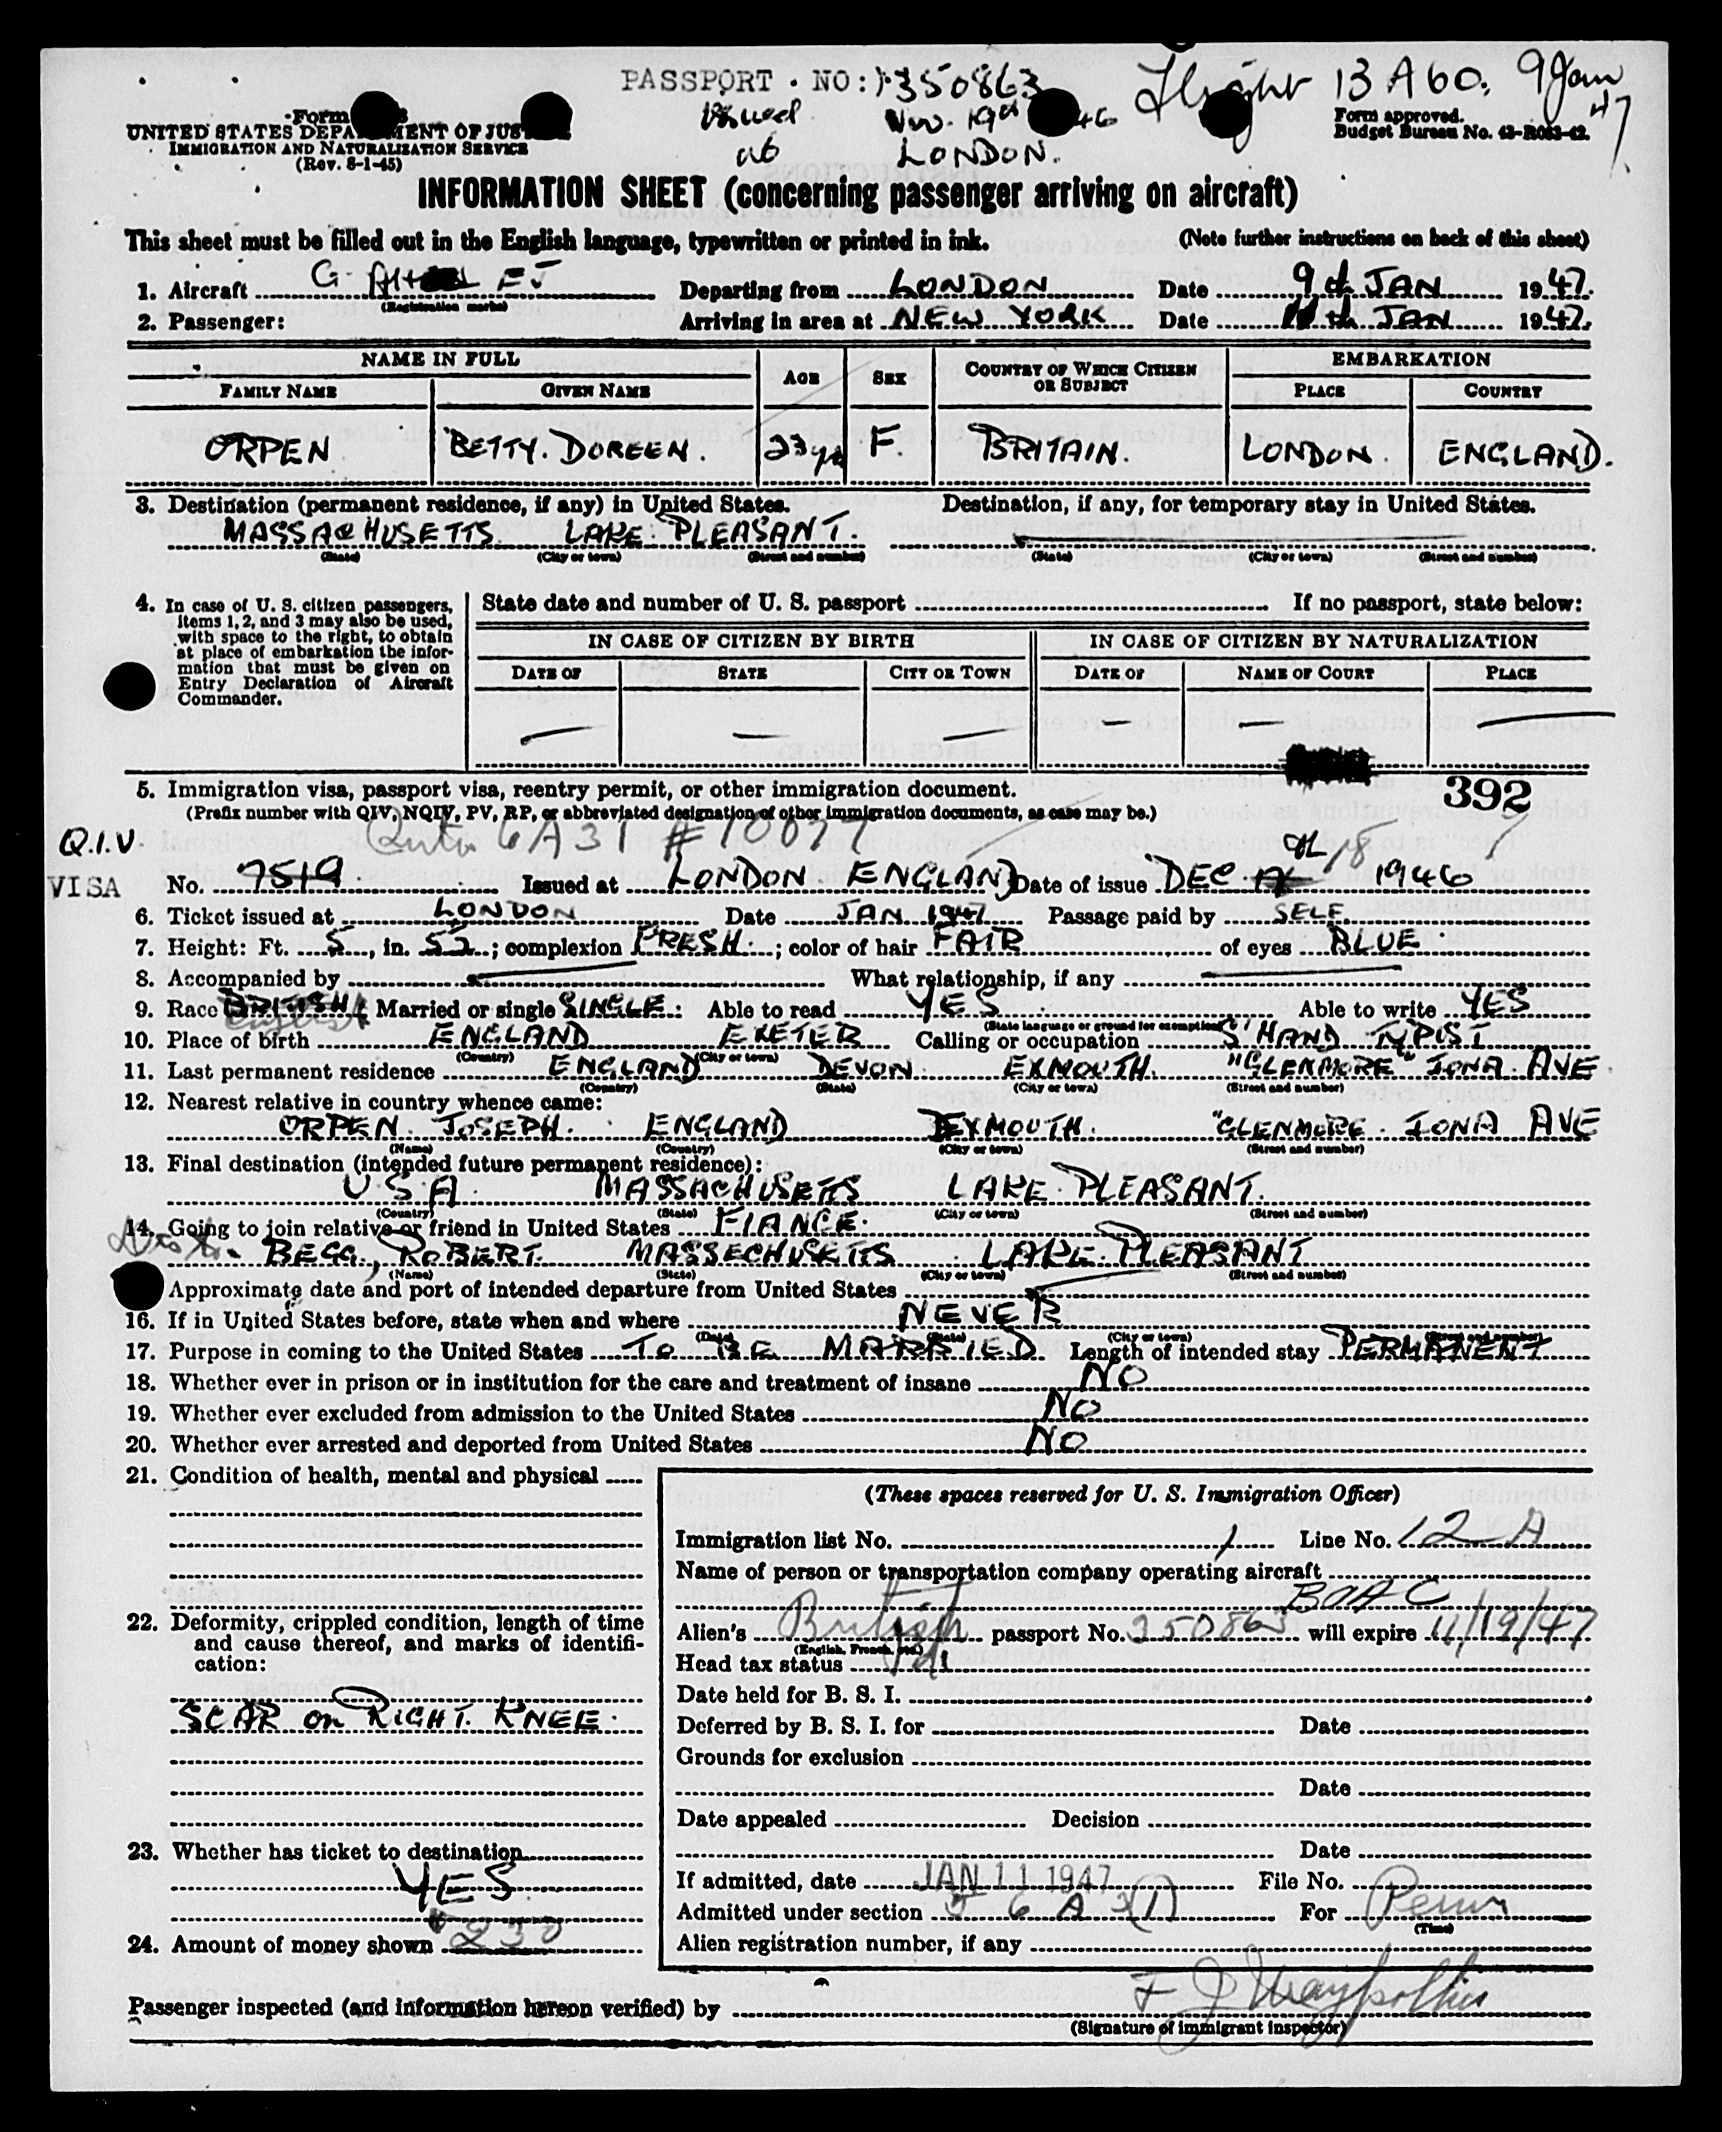 PASSPORT. NO: 350863 Flight 13A60. 9 Jan 47
Issued Nov. 19th 46
at LONDON.
Form
UNITED STATES DEPARTMENT OF JUSTICE
IMMIGRATION AND NATURALIZATION SERVICE
(Rev. 8-1-45)
Form approved.
Budget Bureau No. 43-R083-42.
INFORMATION SHEET (concerning passenger arriving on aircraft)
This sheet must be filled out in the English language, typewritten or printed in ink. (Note further instructions on back of this sheet)
1. Aircraft G. EJ Departing from LONDON Date 9th JAN 1947.
(Registration marks)
2. Passenger: Arriving in area at NEW YORK Date 11th JAN 1947.
NAME IN FULL AGE SEX COUNTRY OF WHICH CITIZEN OR SUBJECT EMBARKATION
FAMILY NAME GIVEN NAME PLACE COUNTRY
ORPEN BETTY. DOREEN. 23 yrs F. BRITAIN. LONDON. ENGLAND.
3. Destination (permanent residence, if any) in United States. Destination, if any, for temporary stay in United States.
MASSACHUSETTS LAKE PLEASANT.
(State) (City or town) (Street and number) (State) (City or town) (Street and number)
4. In case of U. S. citizen passengers, items 1, 2, and 3 may also be used, with space to the right, to obtain at place of embarkation the information that must be given on Entry Declaration of Aircraft Commander.
State date and number of U. S. passport If no passport, state below:
IN CASE OF CITIZEN BY BIRTH IN CASE OF CITIZEN BY NATURALIZATION
DATE OF STATE CITY OR TOWN DATE OF NAME OF COURT PLACE
5. Immigration visa, passport visa, reentry permit, or other immigration document. 392
(Prefix number with QIV, NQIV, PV, RP, or abbreviated designation of other immigration documents, as case may be.)
Quota 6A31 # 10077
Q.I.V.
VISA No. 7519 Issued at LONDON ENGLAND Date of issue DEC 18 1946
6. Ticket issued at LONDON Date JAN 1947 Passage paid by SELF
7. Height: Ft. 5, in. 5½; complexion FRESH.; color of hair FAIR of eyes BLUE
8. Accompanied by What relationship, if any
9. Race BRITISH English Married or single SINGLE: Able to read YES Able to write YES
(State language or ground for exemption)
10. Place of birth ENGLAND EXETER Calling or occupation S'HAND TYPIST
(Country) (City or town)
11. Last permanent residence ENGLAND DEVON EXMOUTH. "GLENMORE" IONA. AVE
(Country) (State) (City or town) (Street and number)
12. Nearest relative in country whence came:
ORPEN. JOSEPH. ENGLAND EXMOUTH. "GLENMORE. IONA AVE
(Name) (Country) (City or town) (Street and number)
13. Final destination (intended future permanent residence):
U.S.A. MASSACHUSETTS LAKE. PLEASANT.
(Country) (State) (City or town) (Street and number)
14. Going to join relative or friend in United States FIANCE.
BEGG, ROBERT. MASSECHUSETTS LAKE. PLEASANT
(Name) (State) (City or town) (Street and number)
Approximate date and port of intended departure from United States
16. If in United States before, state when and where NEVER
(Date) (State) (City or town) (Street and number)
17. Purpose in coming to the United States TO BE MARRIED Length of intended stay PERMANENT
18. Whether ever in prison or in institution for the care and treatment of insane NO
19. Whether ever excluded from admission to the United States NO
20. Whether ever arrested and deported from United States NO
21. Condition of health, mental and physical
22. Deformity, crippled condition, length of time and cause thereof, and marks of identification:
SCAR on RIGHT. KNEE.
23. Whether has ticket to destination
YES
24. Amount of money shown 230
(These spaces reserved for U. S. Immigration Officer)
Immigration list No. 1 Line No. 12-A
Name of person or transportation company operating aircraft
BOAC
Alien's British passport No. 350863 will expire 11/19/47
(English, French, etc.)
Head tax status Pd
Date held for B. S. I.
Deferred by B. S. I. for Date
Grounds for exclusion
Date
Date appealed Decision
Date
If admitted, date JAN 11 1947 File No.
Admitted under section 6 A 3(1) For Perm
(Time)
Alien registration number, if any
Passenger inspected (and information hereon verified) by
(Signature of immigrant inspector)